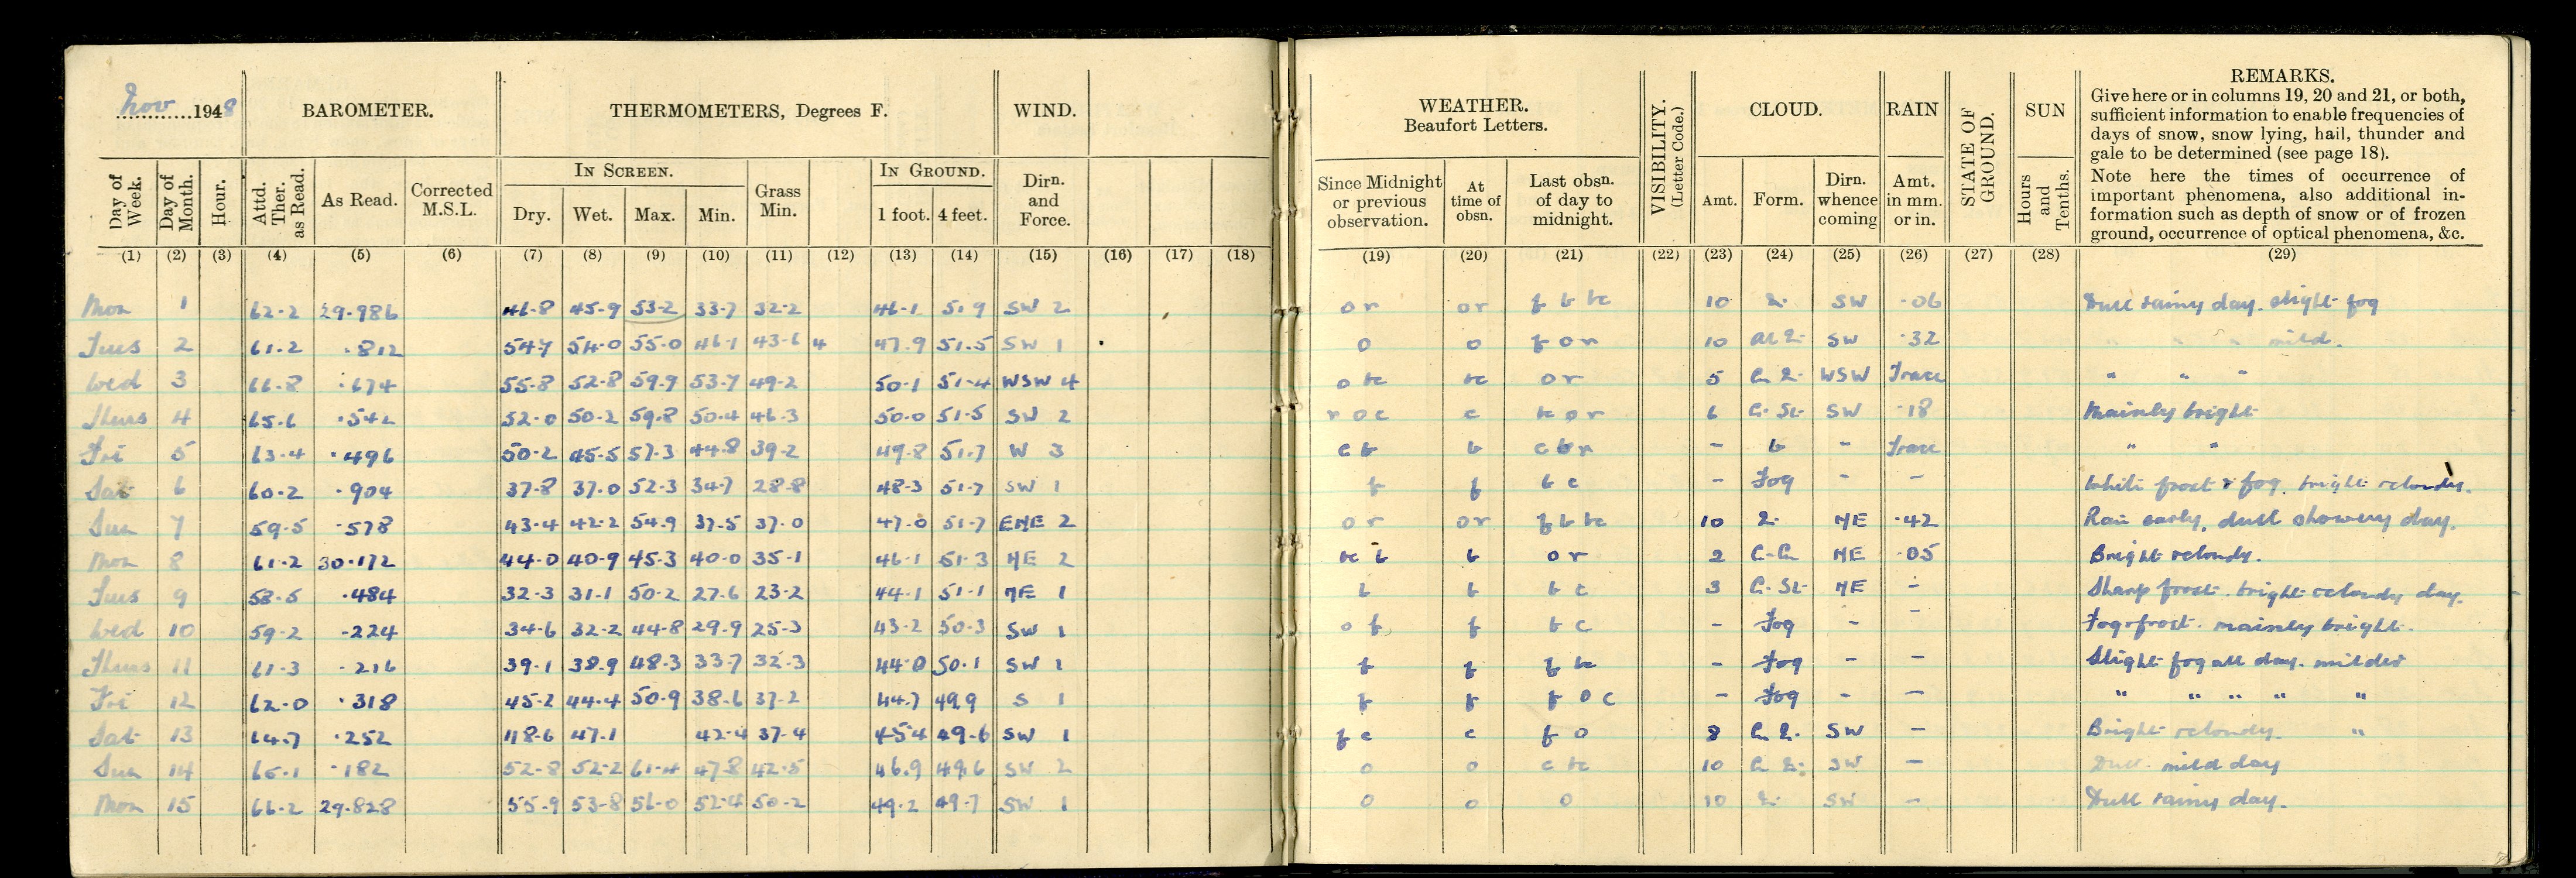 Nov 1948
BAROMETER.
THERMOMETERS, Degrees F.
WIND.
WEATHER.
Beaufort Letters.
VISIBILITY.
(Letter Code.)
CLOUD.
RAIN
STATE OF
GROUND.
SUN
REMARKS.
Give here or in columns 19, 20 and 21, or both,
sufficient information to enable frequencies of
days of snow, snow lying, hail, thunder and
gale to be determined (see page 18).
Note here the times of occurrence of
important phenomena, also additional in-
formation such as depth of snow or of frozen
ground, occurrence of optical phenomena, &c.
Day of Week. Day of Month. Hour. Attd. Ther. as Read. As Read. Corrected M.S.L.
IN SCREEN.
Dry. Wet. Max. Min.
Grass Min.
IN GROUND.
1 foot. 4 feet.
Dirn. and Force.
Since Midnight or previous observation.
At time of obsn.
Last obsn. of day to midnight.
Amt. Form. Dirn. whence coming
Amt. in mm. or in.
Hours and Tenths.
(1) (2) (3) (4) (5) (6) (7) (8) (9) (10) (11) (12) (13) (14) (15) (16) (17) (18) (19) (20) (21) (22) (23) (24) (25) (26) (27) (28) (29)
Mon 1 62.2 29.986 46.8 45.9 53.2 33.7 32.2 46.1 51.9 SW 2 or or f b bc 10 SW .06 Dull rainy day. slight fog
Tues 2 61.2 .812 54.7 54.0 55.0 46.1 43.6 4 47.9 51.5 SW 1 o o f o r 10 SW .32 " " " mild.
Wed 3 66.8 .674 55.8 52.8 59.9 53.7 49.2 50.1 51.4 WSW 4 o bc bc or 5 WSW Trace " " "
Thurs 4 65.6 .542 52.0 50.2 59.8 50.4 46.3 50.0 51.5 SW 2 r o c c bc o r 6 C. St. SW .18 Mainly bright
Fri 5 63.4 .496 50.2 45.5 57.3 44.8 39.2 49.8 51.7 W 3 c b b c b r - b - Trace " "
Sat 6 60.2 .904 37.8 37.0 52.3 34.7 28.8 48.3 51.7 SW 1 f f b c - Fog - - White frost & fog. bright & cloudy.
Sun 7 59.5 .578 43.4 42.2 54.9 37.5 37.0 47.0 51.7 ENE 2 or or f b bc 10 NE .42 Rain early, dull showery day.
Mon 8 61.2 30.172 44.0 40.9 45.3 40.0 35.1 46.1 51.3 NE 2 bc b b or 2 NE .05 Bright & cloudy.
Tues 9 58.5 .484 32.3 31.1 50.2 27.6 23.2 44.1 51.1 NE 1 b b b c 3 C. St. NE - Sharp frost. bright & cloudy day.
Wed 10 59.2 .224 34.6 32.2 44.8 29.9 25.3 43.2 50.3 SW 1 o f f b c - Fog - - Fog & frost. mainly bright.
Thurs 11 61.3 .216 39.1 38.9 48.3 33.7 32.3 44.0 50.1 SW 1 f f f bc - Fog - - Slight fog all day. milder
Fri 12 62.0 .318 45.2 44.4 50.9 38.6 37.2 44.7 49.9 S 1 f f f o c - Fog - - " " " " "
Sat 13 64.7 .252 48.6 47.1 42.4 37.4 45.4 49.6 SW 1 f c c f o 8 SW - Bright & cloudy. "
Sun 14 65.1 .182 52.8 52.2 61.4 47.8 42.5 46.9 49.6 SW 2 o o c bc 10 SW - Dull mild day
Mon 15 66.2 29.828 55.9 53.8 56.0 52.4 50.2 49.2 49.7 SW 1 o o o 10 SW - Dull rainy day.